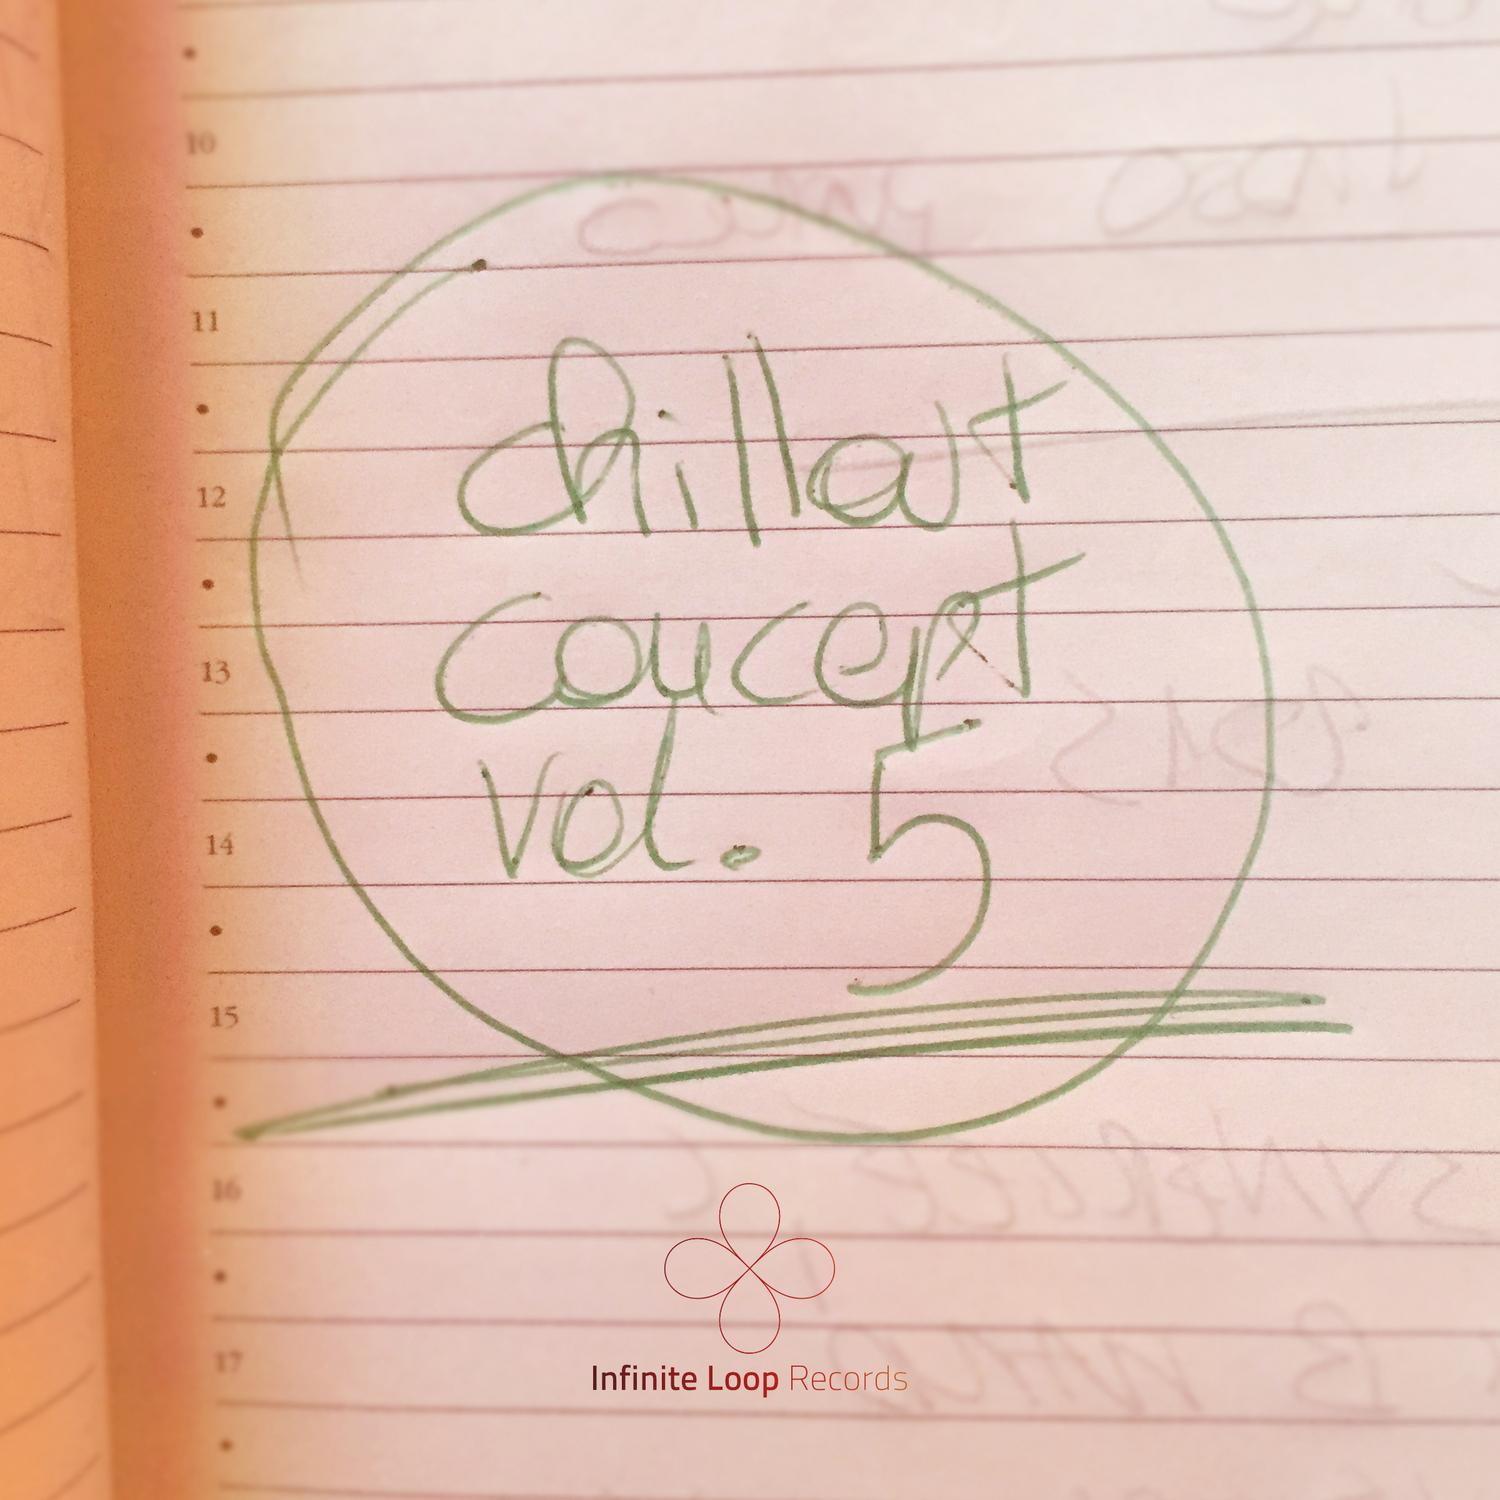 10
11
12
chillout
concept
13
vol. 5
14
15
16
17
Infinite Loop Records